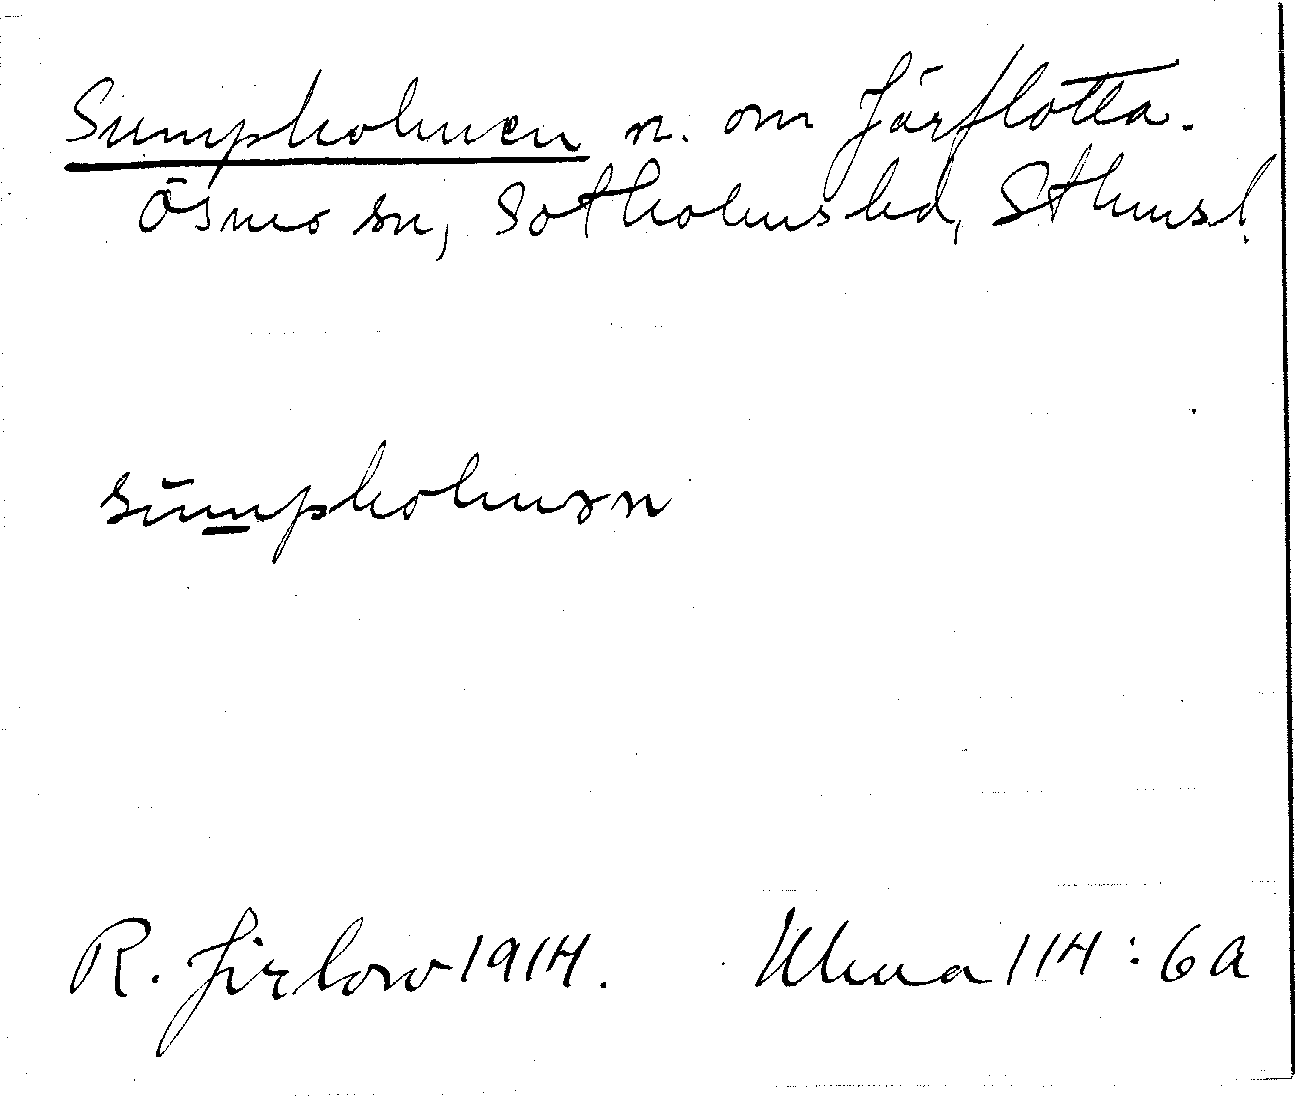 Sumpholmen n. om Järflotta.
Ösmo sn, Sotholms hd, Sthms l.
sumpholmən
R. Jirlow 1914. Uhma 114:6a